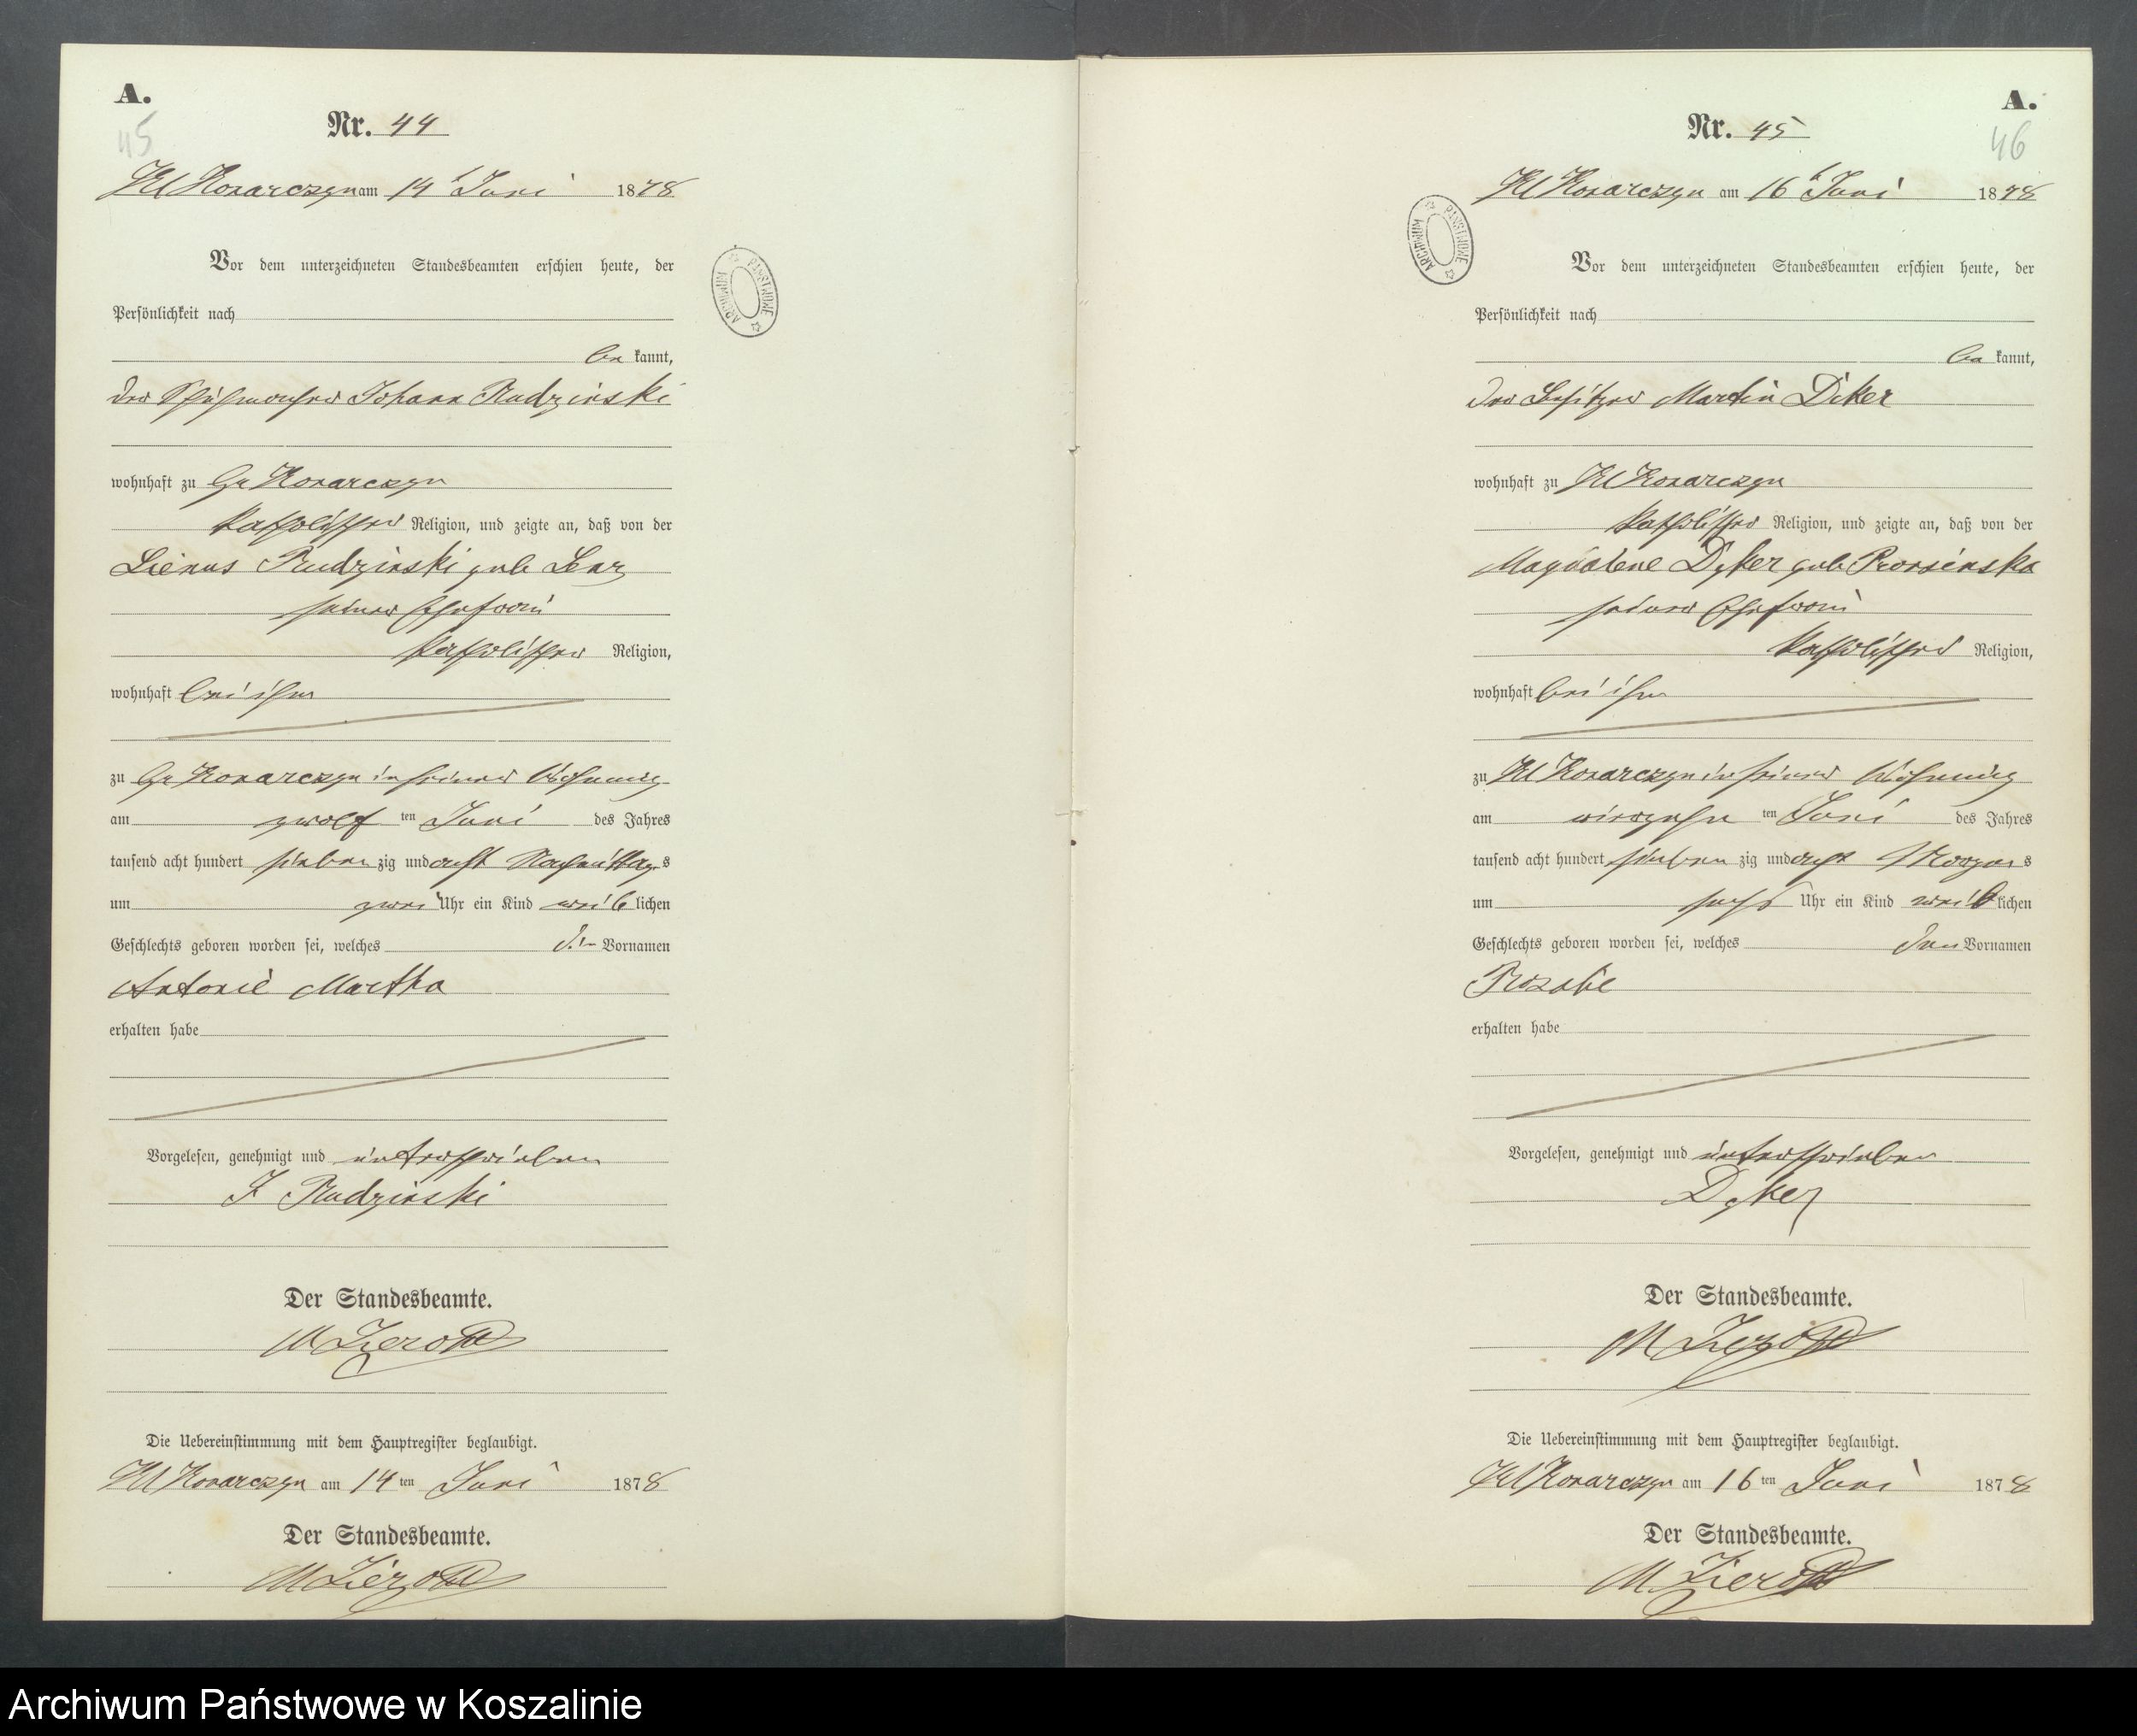 A.
45
Nr. 44
Kl Konarczyn am 14 t Juni 1878
Vor dem unterzeichneten Standesbeamten erschien heute, der
Persönlichkeit nach
be kannt,
der Schuhmacher Johann Rudzinski
wohnhaft zu Gr Konarczyn
katholischer Religion, und zeigte an, daß von der
Rudzinski geb
seiner Ehefrau
katholischer Religion,
wohnhaft bei ihm
zu Gr Konarczyn in seiner Wohnung
am zwölf ten Juni des Jahres
tausend acht hundert sieben zig und acht Nachmittags
um zwei Uhr ein Kind weib lichen
Geschlechts geboren worden sei, welches die Vornamen
Antonie Martha
erhalten habe
Vorgelesen, genehmigt und unterschrieben
J Rudzinski
Der Standesbeamte.
Die Uebereinstimmung mit dem Hauptregister beglaubigt.
Kl Konarczyn am 14 ten Juni 1878
Der Standesbeamte.
ARCHIWUM PAŃSTWOWE
A.
46
Nr. 45
Kl Konarczyn am 16 t Juni 1878
Vor dem unterzeichneten Standesbeamten erschien heute, der
Persönlichkeit nach
be kannt,
der Besitzer Martin Diker
wohnhaft zu Kl Konarczyn
katholischer Religion, und zeigte an, daß von der
Magdalene Dyker geb
seiner Ehefrau
katholischer Religion,
wohnhaft bei ihm
zu Kl Konarczyn in seiner Wohnung
am vierzehn ten Juni des Jahres
tausend acht hundert sieben zig und acht Morgens
um sechs Uhr ein Kind weib lichen
Geschlechts geboren worden sei, welches den Vornamen
Rosalie
erhalten habe
Vorgelesen, genehmigt und unterschrieben
Dyker
Der Standesbeamte.
Die Uebereinstimmung mit dem Hauptregister beglaubigt.
Kl Konarczyn am 16 ten Juni 1878
Der Standesbeamte.
ARCHIWUM PAŃSTWOWE
Archiwum Państwowe w Koszalinie